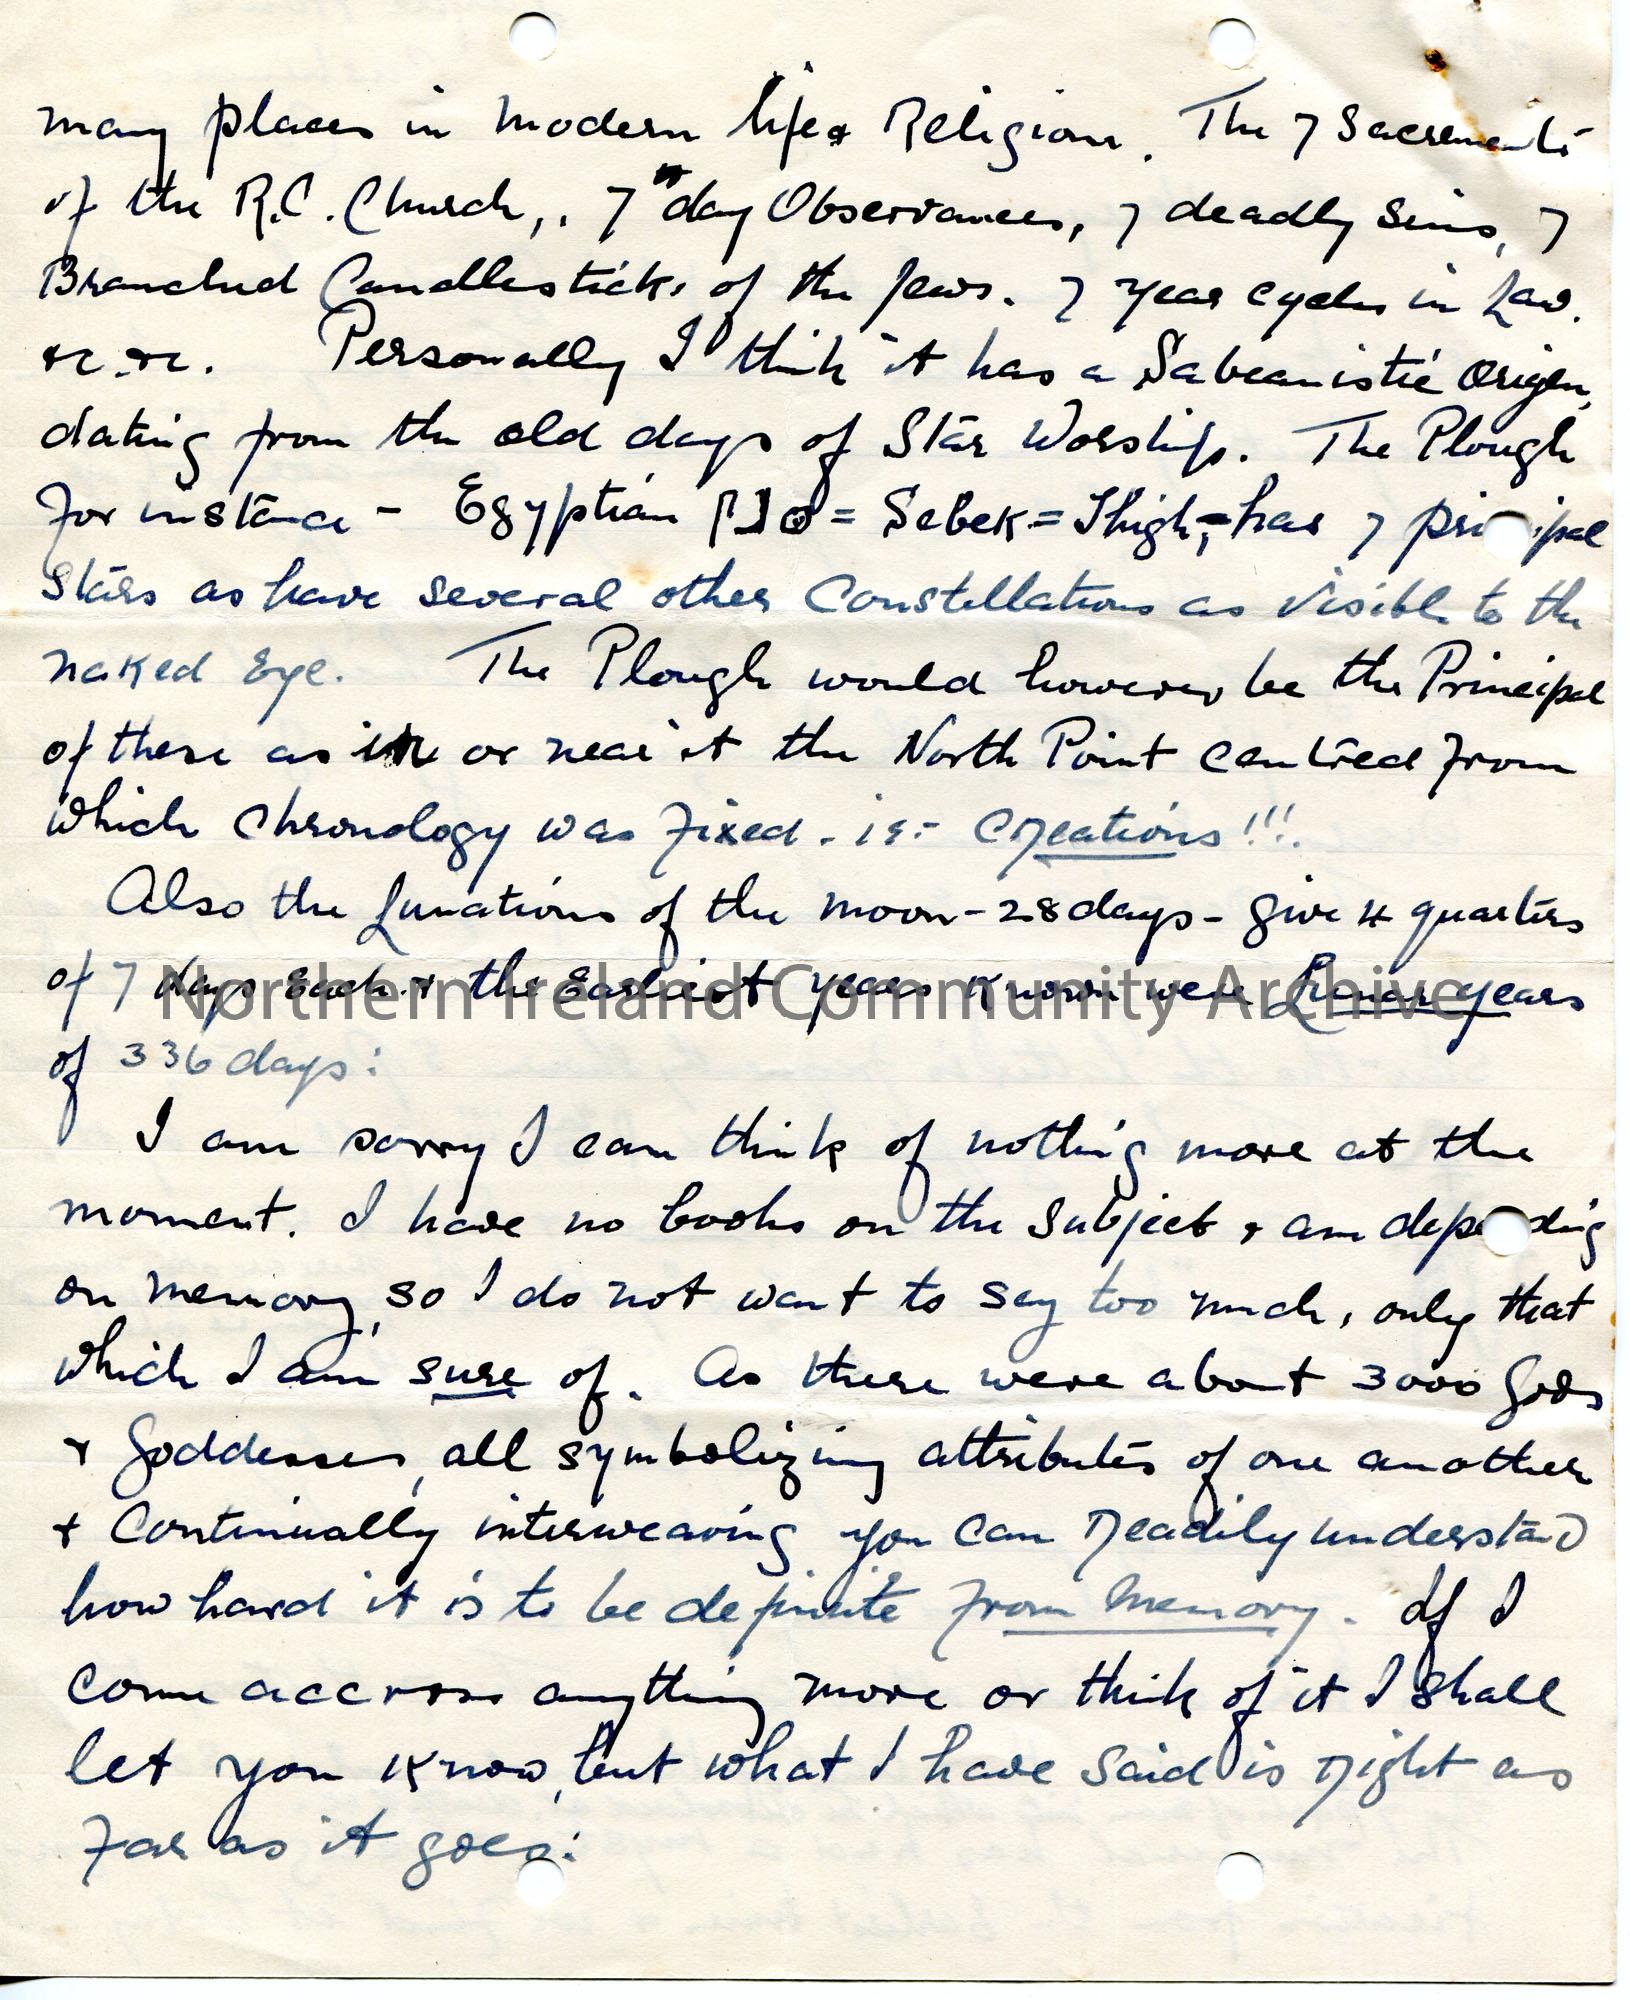 many places in Modern life & Religion. The 7 Sacrements
of the R.C. Church,. 7th day Observances, 7 deadly sins, 7
Branched Candlesticks of the Jews. 7 year cycles in Law.
&c. &c. Personally I think it has a Sabeanistic Origen,
dating from the old days of Star Worship. The Plough
for instance - Egyptian = Sebek = Thigh, - has 7 pri ipal
Stars as have several other Constellations as visible to the
naked Eye. The Plough would however be the Principal
of these as in or near it the North Point centred from
which Chronology was fixed. ie:- Creations!!!
Also the Lunations of the moon - 28 days - give 4 quarters
of 7 days Each & the Earliest years known were Lunar years
Northern Ireland Community Archive
of 336 days:
I am sorry I can think of nothing more at the
moment. I have no books on the subject & am depe ding
on memory, so I do not want to say too much, only that
which I am sure of. As there were about 3000 Gods
& Goddesses, all symbolizing attributes of one another
& Continually interweaving you can readily understand
how hard it is to be definite from Memory. If I
come accross anything more or think of it I shall
let you know, but what I have said is right as
far as it goes: